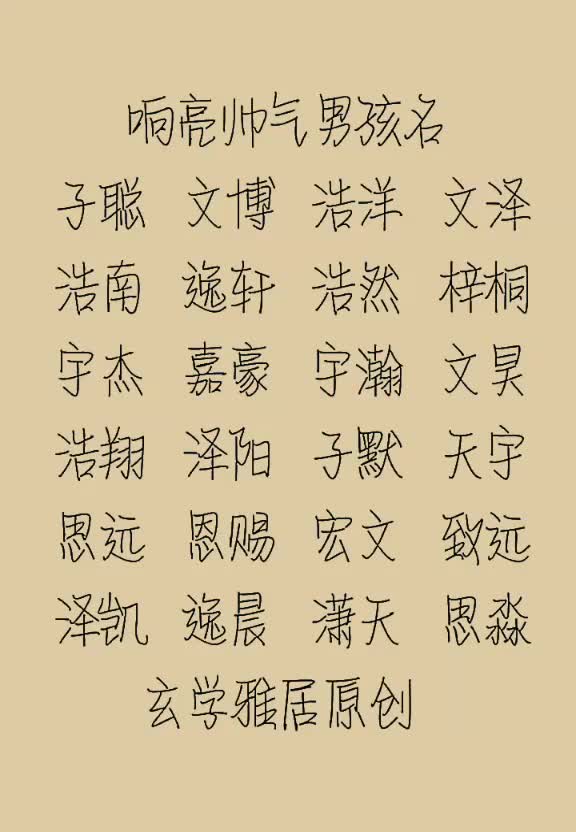 响亮帅气男孩名
子聪 文博 浩洋 文泽
浩南 逸轩 浩然 梓桐
宇杰 嘉豪 宇瀚 文昊
浩翔 泽阳 子默 天宇
思远 恩赐 宏文 致远
泽凯 逸晨 潇天 思淼
玄学雅居原创